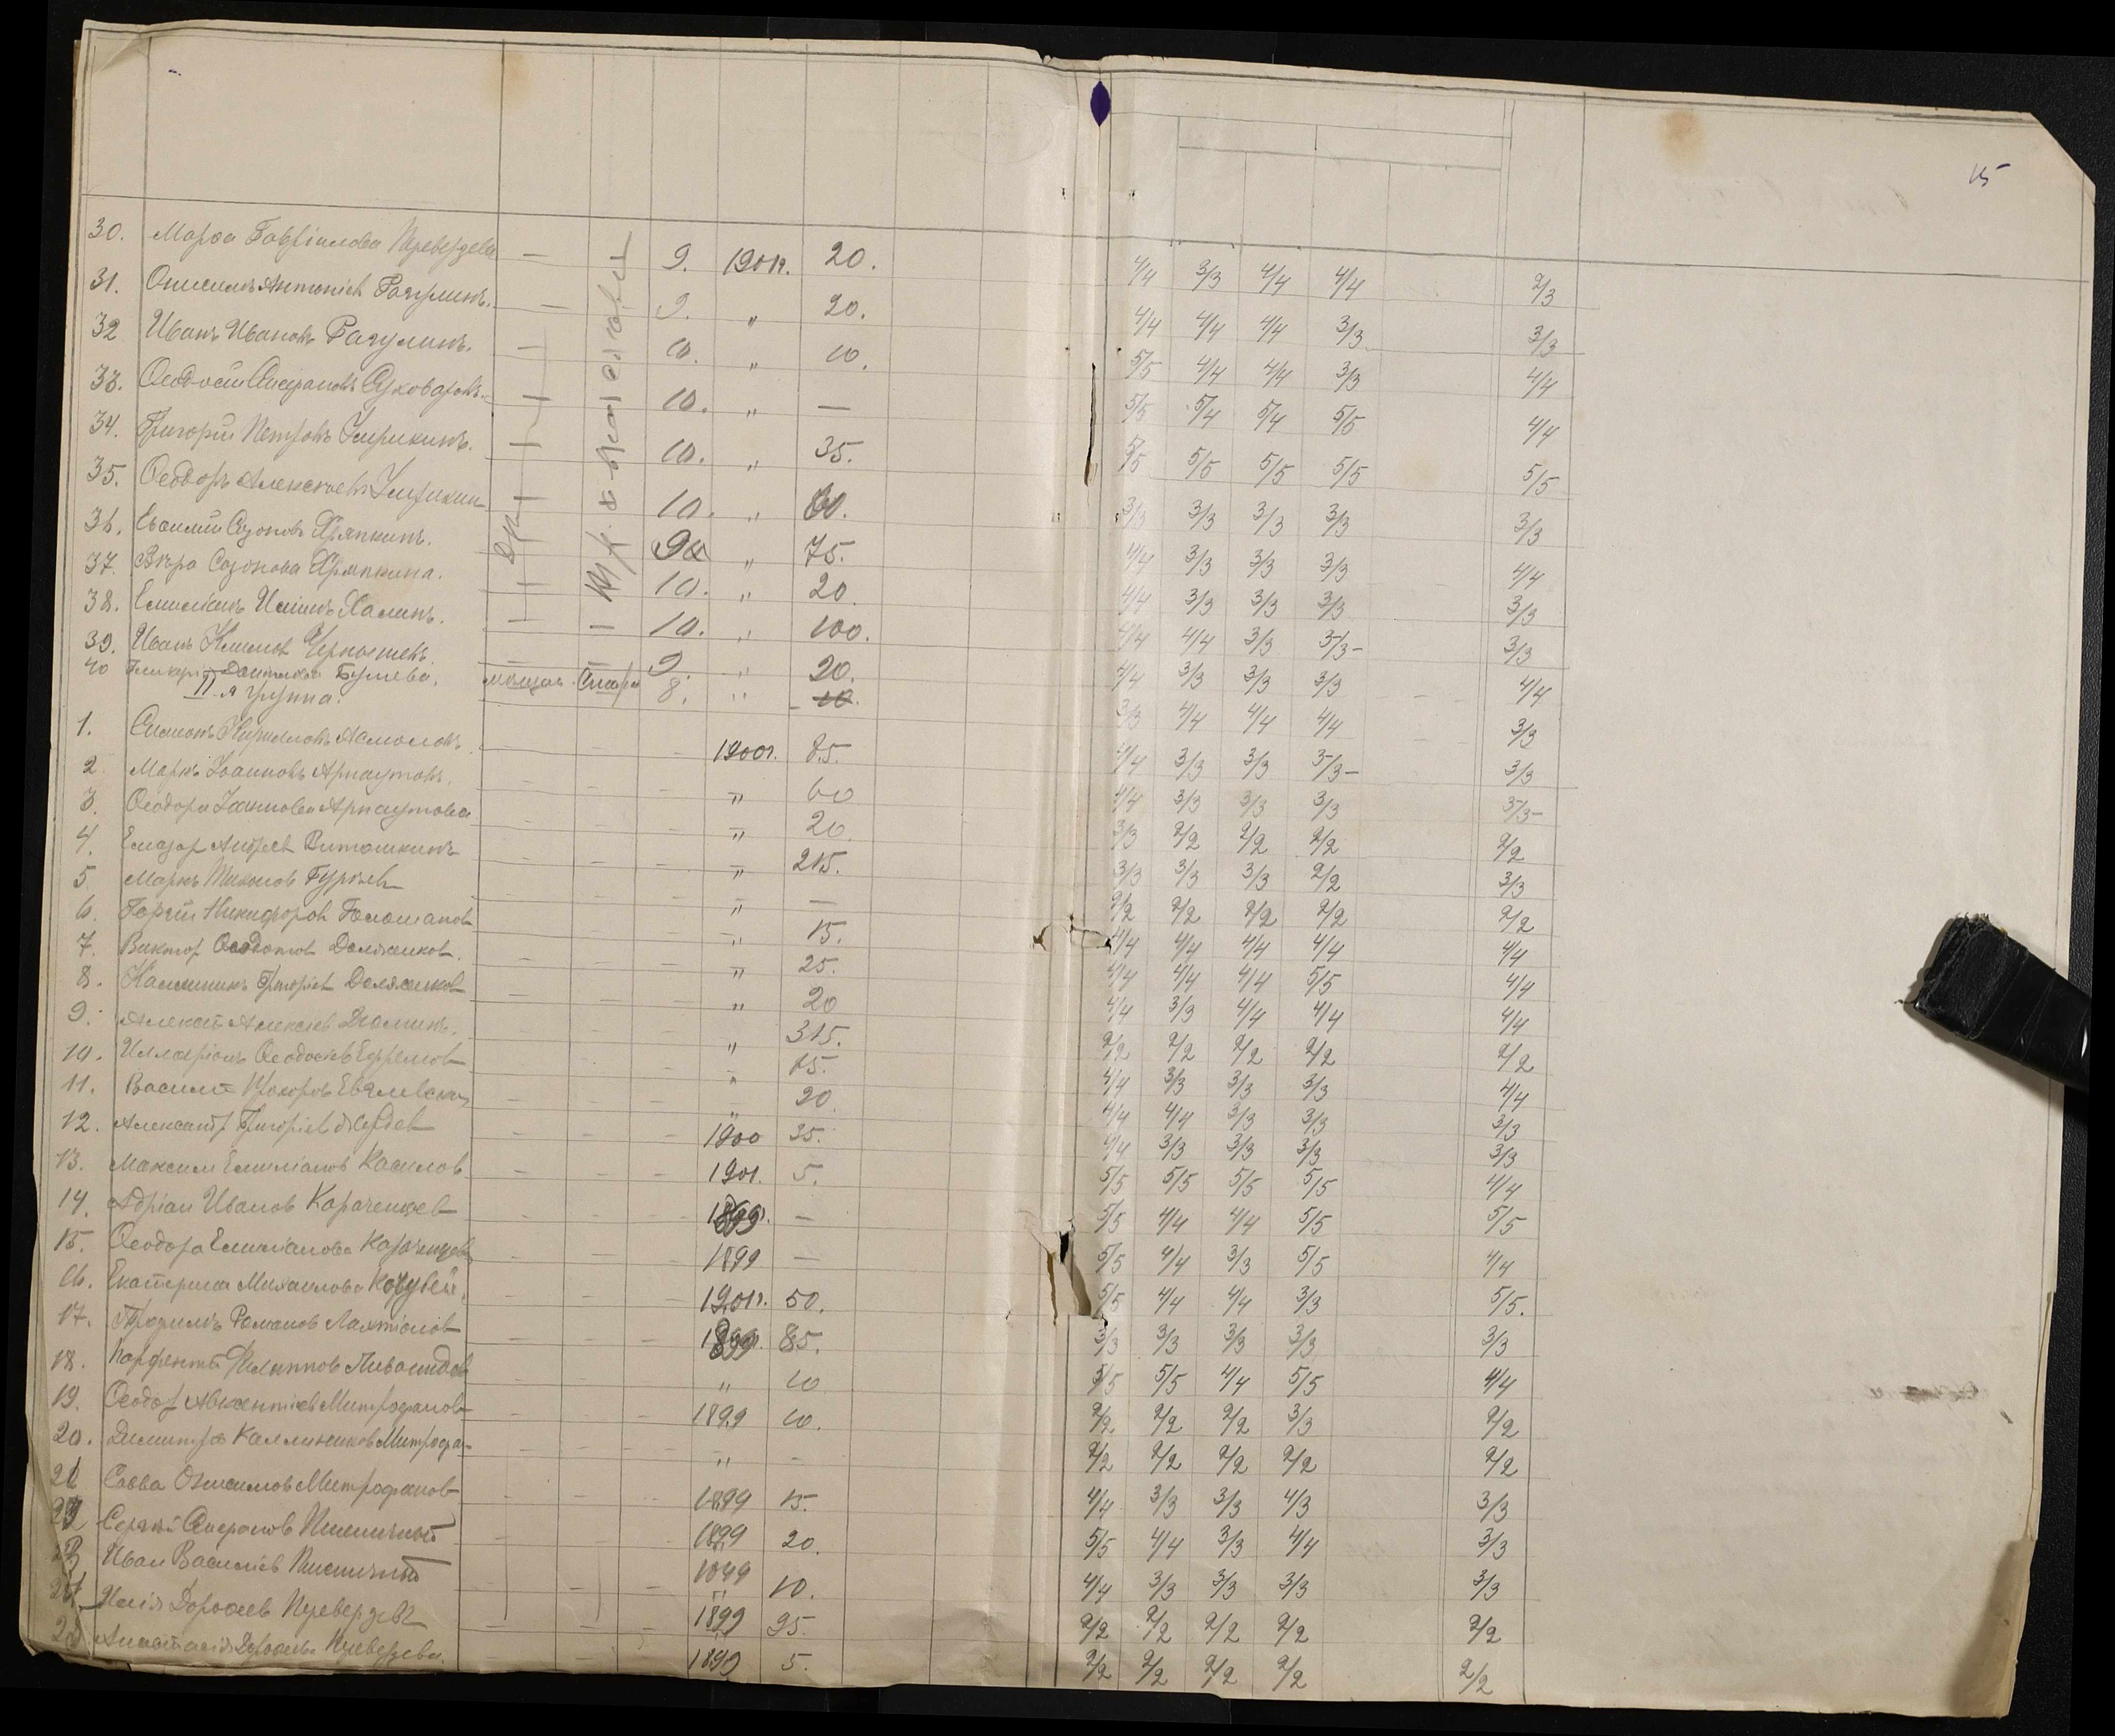 15
30. Марѳа Гавріилова Переверзева — 9. 1901г. 20. 4/4 3/3 4/4 4/4 2/3
31. Онисимъ Антоніев Рагулинъ. — 9. " 20. 4/4 4/4 4/4 3/3 3/3
32 Иванъ Ивановъ Рагулинъ. — 10. " 10. 5/5 4/4 4/4 3/3 4/4
33. Ѳеодосій — 10. " — 5/5 5/4 5/4 5/5 4/4
34. Григорій Петровъ — 10. " 35. 5/5 5/5 5/5 5/5 5/5
35. Ѳеодоръ Алексѣевъ 10. " 60. 3/3 3/3 3/3 3/3 3/3
36. Евѳимій Созоновъ Хряпкинъ. " 75. 4/4 3/3 3/3 3/3 4/4
37. Вѣра Созонова Хряпкина. 10. " 20. 4/4 3/3 3/3 3/3 3/3
38. Емиліанъ Халинъ. 10. " 100. 4/4 4/4 3/3 3-/3- 3/3
39. Иванъ Климов Чернышевъ. 9. " 20. 4/4 3/3 3/3 3/3 4/4
40 Булева. 8. " 10. 3/3 4/4 4/4 4/4 3/3
II-я группа.
1. Симеонъ Кирилловъ Асмоловъ. 1900г. 85. 4/4 3/3 3/3 3-/3- 3/3
2. Маркъ Іоанновъ Арнаутовъ. " 60 4/4 3/3 3/3 3/3 3-/3-
3. Ѳеодора Іоаннова Арнаутова " 20 3/3 2/2 2/2 2/2 2/2
4. Елеазар Андреев Виташкинъ " 215. 3/3 3/3 3/3 2/2 3/3
5. Маркъ Тихонов Гурьев " — 2/2 2/2 2/2 2/2 2/2
6. Никифоров " 15. 4/4 4/4 4/4 4/4 4/4
7. Виктор Ѳеодотов Должиков. " 25. 4/4 4/4 4/4 5/5 4/4
8. Каллиникъ Григоріев Должиков " 20 4/4 3/3 4/4 4/4 4/4
9. Алексѣй Алексѣев " 315. 2/2 2/2 2/2 2/2 2/2
10. Илларіонъ Ѳеодосіев Ефремов " 15. 4/4 3/3 3/3 3/3 4/4
11. Василій Прохоров " 20 4/4 4/4 3/3 3/3 3/3
12. Александр Григоріев 1900 35. 4/4 3/3 3/3 3/3 3/3
13. Максим Емиліанов 1901. 5. 5/5 5/5 5/5 5/5 4/4
14. Адріан Иванов Караченцев 1899. — 5/5 4/4 4/4 5/5 5/5
15. Ѳеодора Емиліанова Караченцева 1899 — 5/5 4/4 3/3 5/5 4/4
16. Екатерина Михаилова Кочубей. 1901г. 50. 5/5 4/4 4/4 3/3 5/5.
17. Трофимъ Романов Лахтіонов 1899. 85. 3/3 3/3 3/3 3/3 3/3
18. Парфентій Филиппов " 10 5/5 5/5 4/4 5/5 4/4
19. Ѳеодор Авксентіев Митрофанов 1899 10. 2/2 2/2 2/2 3/3 2/2
20. Димитрій Каллиников Митрофа- " - 2/2 2/2 2/2 2/2 2/2
21 Савва Онисимов Митрофанов 1899 15. 4/4 3/3 3/3 4/3 3/3
22 Сергѣй Пшеничный 1899 20. 5/5 4/4 3/3 4/4 3/3
23 Иван Василіев Пшеничный 10. 4/4 3/3 3/3 3/3 3/3
24 Илія Дороѳеев Переверзевъ 1899 95. 2/2 2/2 2/2 2/2 2/2
25 Анастасія Дороѳеева Переверзева. 1899 5. 2/2 2/2 2/2 2/2 2/2